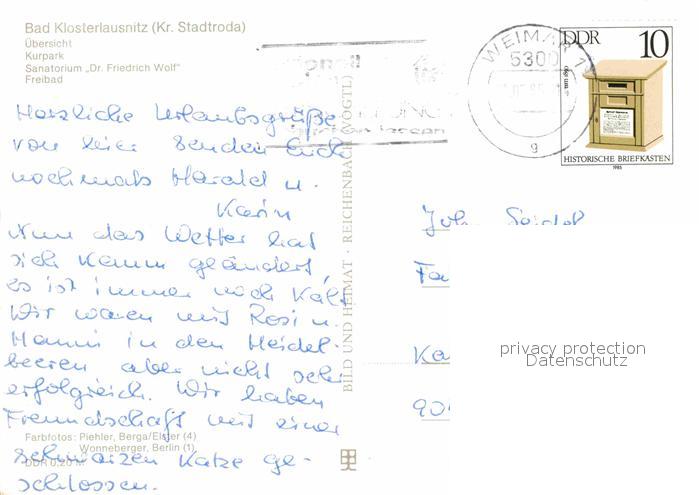 Bad Klosterlausnitz (Kr. Stadtroda)
Übersicht
Kurpark
Sanatorium „Dr. Friedrich Wolf"
Freibad
Herzliche Urlaubsgrüße
von hier senden Euch
nochmals Harald u.
Karin
Nun das Wetter hat
sich kaum geändert,
es ist immer noch kalt
Wir waren mit Rosi u.
Manni in den Heidel-
beeren aber nicht sehr
erfolgreich. Wir haben
Freundschaft mit einer
schwarzen Katze ge-
schlossen.
Farbfotos: Piehler, Berga/Elster (4)
Wonneberger, Berlin (1)
DDR 0,20 M
BILD UND HEIMAT · REICHENBACH (VOGTL)
WEIMAR 1
5300
g
DDR 10
um 1860
HISTORISCHE BRIEFKASTEN
1985
Joh. Seidel
Fa
Ka
90
privacy protection
Datenschutz